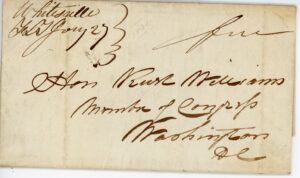 Whitesville
Jany 27
free
Hon Williams
Member of Congress
Washington
DC